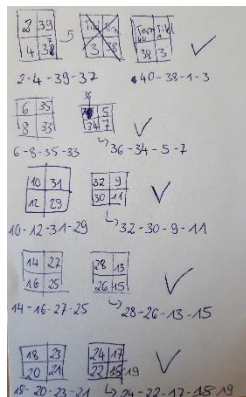 2 39
4 37
3 38
40
38 3
2-4-39-37
40-38-1-3
6 35
8 33
36 5
34 7
6-8-35-33
36-34-5-7
10 31
12 29
32 9
30 11
10-12-31-29
32-30-9-11
14 27
16 25
28 13
26 15
14-16-27-25
28-26-13-15
18 23
20 21
24 17
22 19
18-20-23-21
24-22-17-18 19